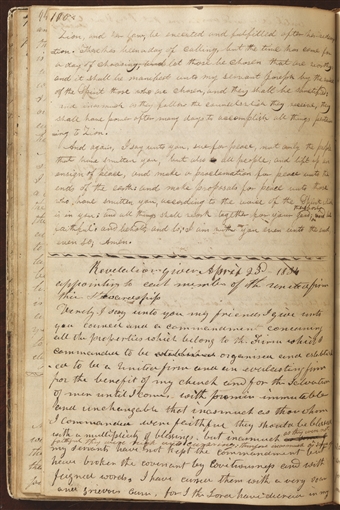 Zion, and her law be executed and fulfilled after her redem
tion. There has been a day of calling, but the time has come for
a day of choosing, and let those be chosen that are worthy
and it shall be manifest unto my servant Joseph by the voice
of the Spirit those who are chosen, and they shall be sanctified,
and inasmuch as they follow the counsel which they receive, they
shall have power after many days to accomplish all things pertain
ing to Zion.
And again, I say unto you, sue for peace, not only the people
that have smitten you, but also all people, and lift up an
ensign of peace, and make a proclamation for peace unto the
ends of the earth and make proposals for peace unto those
who have smitten you, according to the voice of the Spirit which
is in you and all things shall work together for your good, be
faithful and behold and lo, I am with you even unto the end
even so, Amen.
Revelation given April 23d. 1834
appointing to each member of the united firm
their Stewardship
Verily I say unto you my friends I give unto
you council and a commandment concerning
all the properties which belong to the Firm which I
commanded to be organised and establish
ed to be a United firm and an everlasting firm
for the benefit of my church and for the Salvation
of men until I come, with promise immutable
and unchangable that inasmuch as those whom
I commanded were faithful they should be blessed
with a multiplicity of blessings, but inasmuch as they were not
faithful they were nigh unto cursing
my servants have not kept the commandment but
have broken the covenant by covetousness and with
feigned words, I have cursed them with a very sore
and grievous curse, for I the Lord have decreed in my